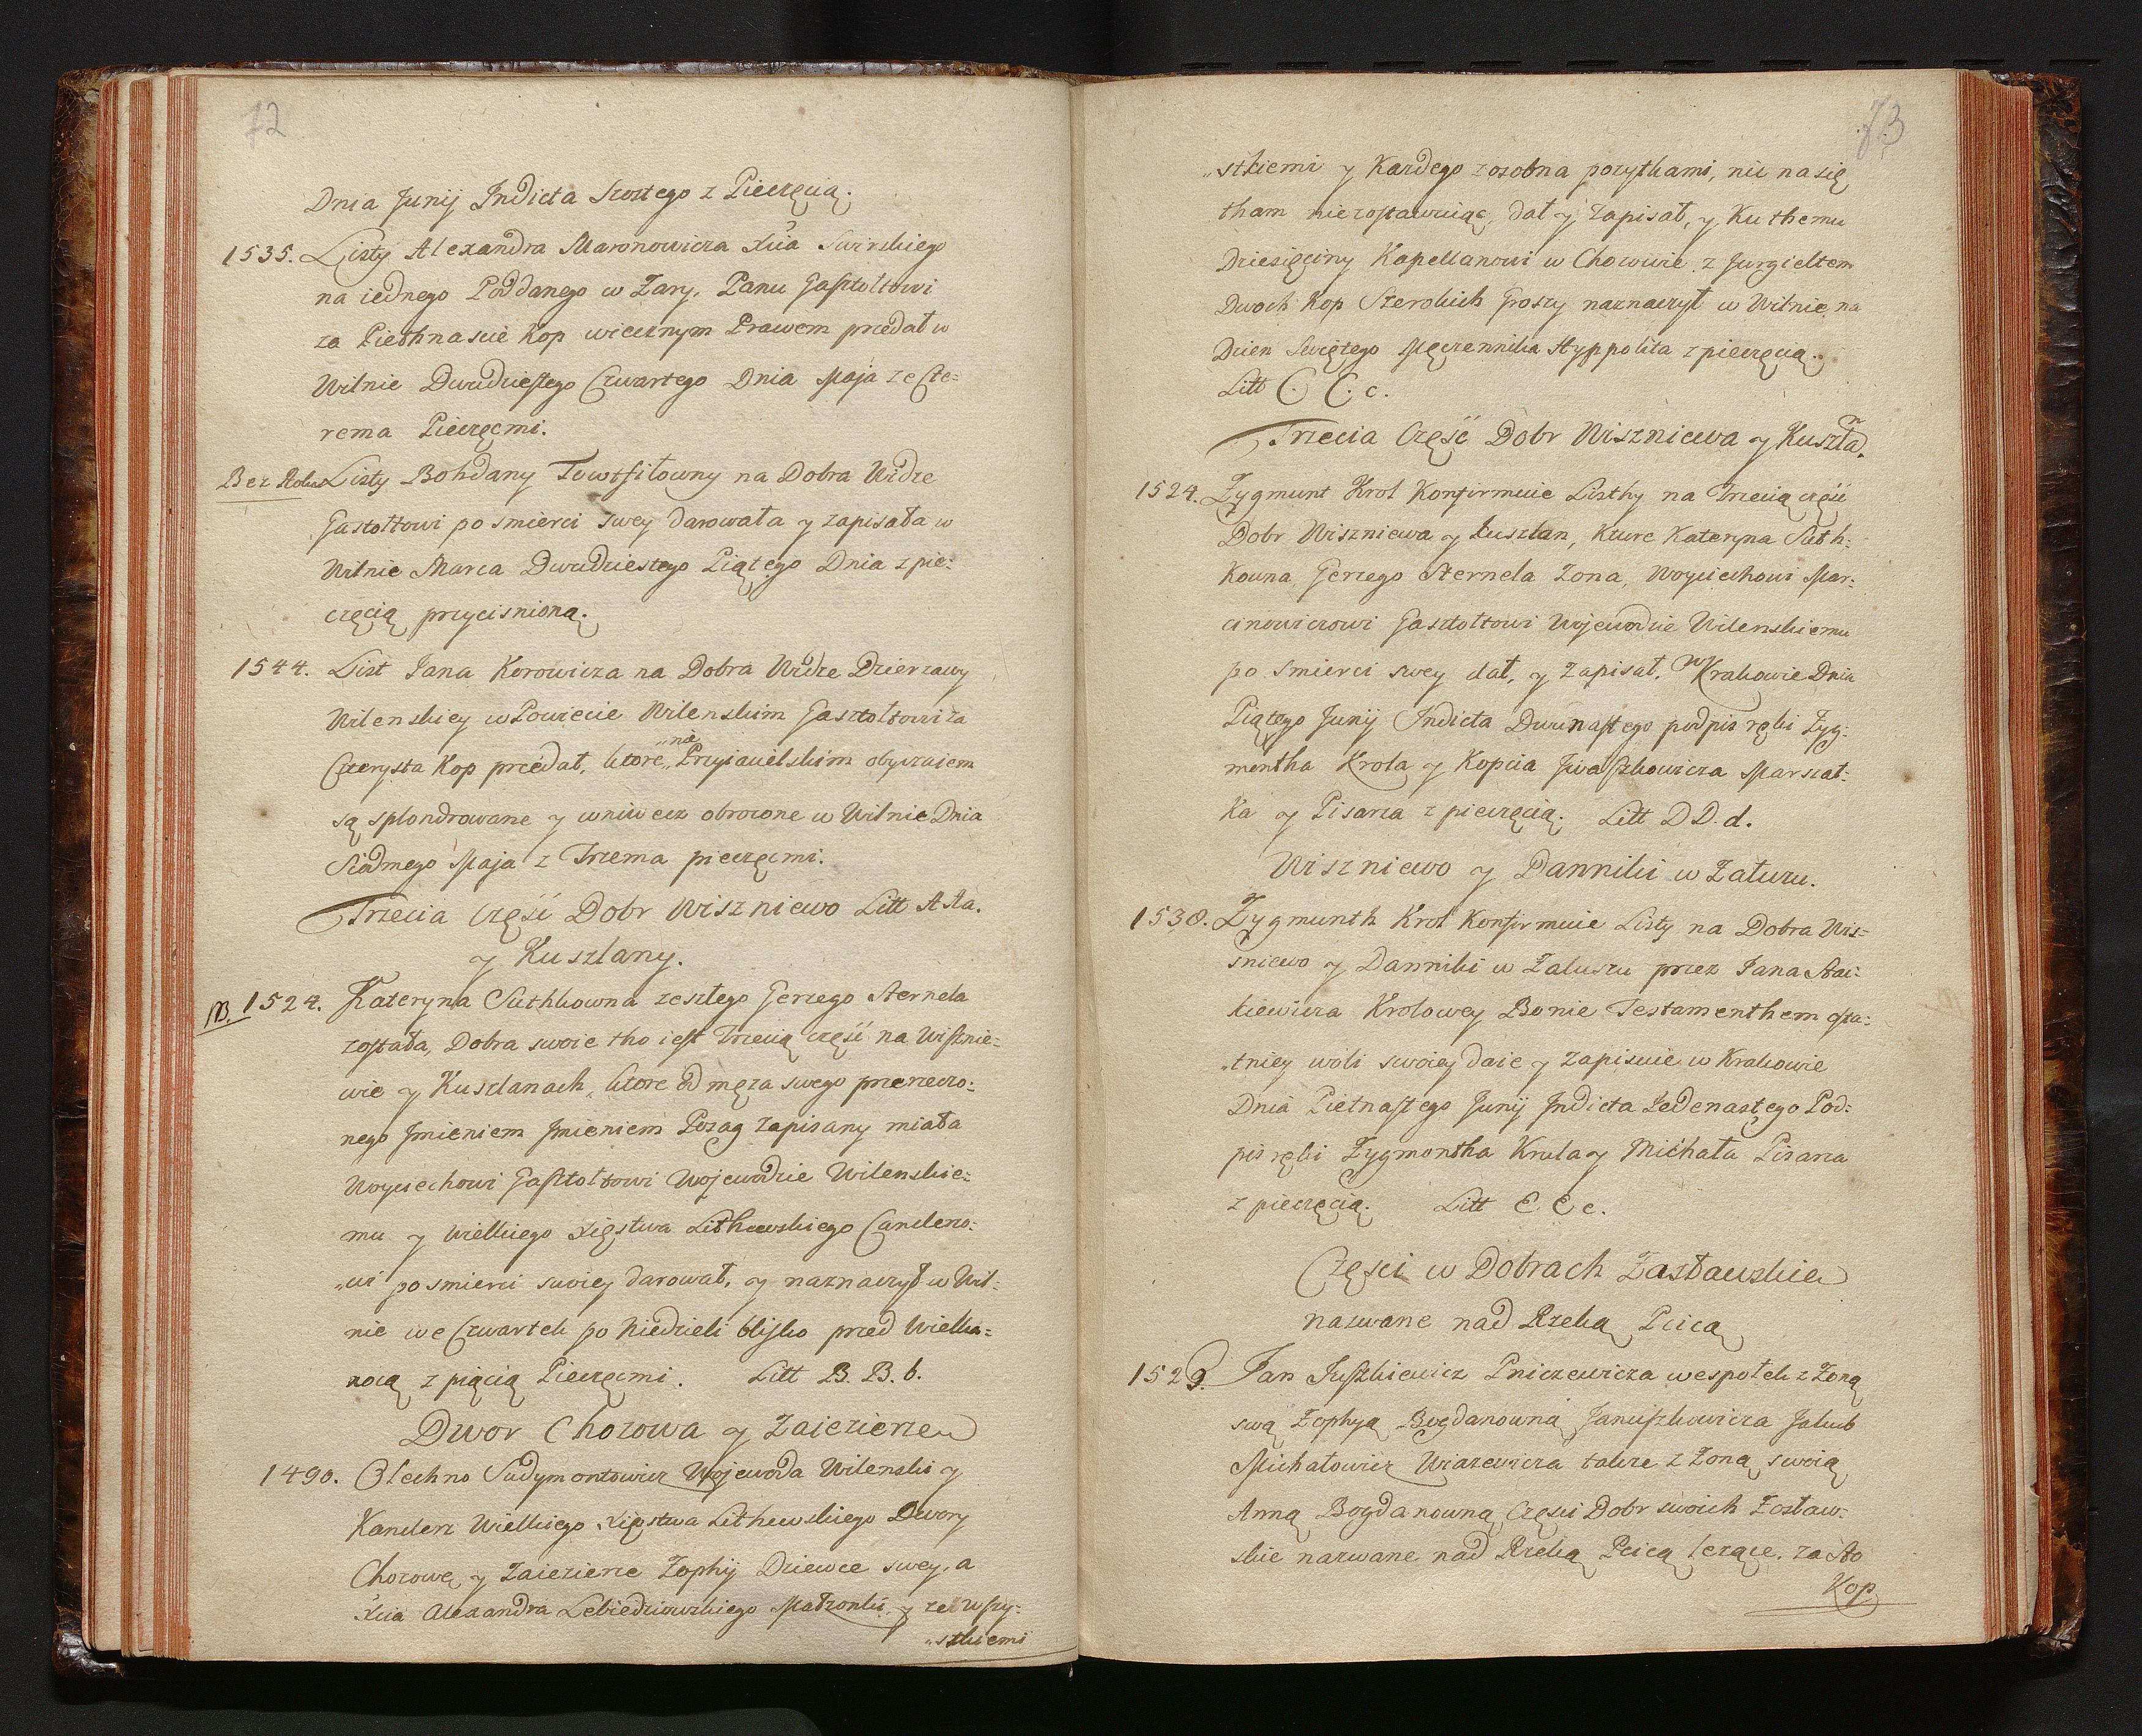 72
Dnia Junij Indicta Szostego z Pieczęcią.
1535. Listy Alexandra Maronowicza Xcia Swirskiego
na iednego Poddanego w Zary, Panu Gasztoltowi
za Piethnascie Kop wiecznym Prawem przedał w
Wilnie Dwudziestego Czwartego Dnia Maja ze Czte=
rema Pieczęcmi.
Bez Roku Listy Bohdany Towtfiłowny na Dobra Widze
Gasztołtowi po smierci swey darowała y zapisała w
Wilnie Marca Dwudziestego Piątego Dnia z pie=
częcią przycisnioną.
1544. List Jana Korowicza na Dobra Widze Dzierzawy
Wilenskiey w Powiecie Wilenskim Gasztołtowi za
Czterysta Kop przedał, ktore „nie „Przyiacielskim obyczaiem
są splondrowane y wniwecz obrocone w Wilnie Dnia
Siodmego Maja z Trzema pieczęcmi.
Trzecia Część Dobr Wiszniewo Litt A Aa.
y Kuszlany.
NB. 1524. Kateryna Suthkowna zeszłego Gerzego Sternela
została, Dobra swoie tho iest Trzecią część na Wisznie=
wie y Kuszlanach, ktore od męza swego przerzeczo=
nego Jmieniem Jmieniem Posag zapisany miała
Woyciechowi Gasztoltowi Wojewodzie Wilenskie=
mu y Wielkiego Xięstwa Lithewskiego Canclerzo=
„wi po smierci swoiey darował, y naznaczył w Wil=
nie we Czwartek po Niedzieli blisko przed Wielka=
nocą z piącią Pieczęcmi. Litt B. B. b.
Dwor Chozowa y Zaiezierze
1490. Olechno Sudymontowicz Wojewoda Wilenski y
Kanclerz Wielkiego Xięstwa Lithewskiego Dwory
Chozowę y Zaiezierze Zophij Dziewce swey, a
Xcia Alexandra Lebiedziowskiego Małzonki, y ze wszy=
„stkiemi
73
„stkiemi y Kazdego zosobna pozythami, nic na się
tham nie zostawuiąc, dał y zapisał, y Ku themu
Dziesięciny Kapellanowi w Chozowie z Jurgieltem
Dwoch Kop Szerokich Groszy naznaczył w Wilnie na
Dzien Swiętego Męczennika Hyppolita z pieczęcią.
Litt C. C. c.
Trzecia Część Dobr Wiszniewa y Kuszlan.
1524. Zygmunt Krol Konfirmuie Listhy na Trzecią część
Dobr Wiszniewa y Kuszlan, Kture Kateryna Suth=
kowna Gerzego Sternela Zona, Woyciechowi Mar=
cinowiczowi Gasztołtowi Wojewodzie Wilenskiemu
po smierci swey dał, y zapisał. w Krakowie Dnia
Piątego Junij Indicta Dwunastego podpis ręki Zyg=
montha Krola y Kopcia Jwaszkowicza Marszał=
ka y Pisarza z pieczęcią. Litt D D. d.
Wiszniewo y Danniki w Załuzu.
1538. Zygmunth Krol Konfirmuie Listy na Dobra Wis=
sniewo y Danniki w Zaluszu przez Jana
kiewicza Krolowey Bonie Testamenthem osta=
„tniey woli swoiey daie y zapisuie w Krakowie
Dnia Pietnastego Junij Indicta Jedenastego Pod=
pis ręki Zygmontha Krula y Michała Pisarza
z pieczęcią. Litt E E e.
Częsci w Dobrach Zasławskie
nazwane nad Rzeką Pcicą
1529. Jan Juszkiewicz Pniczewicza wespołek z Zoną
swą Zophyą Bogdanowną Januszkowicza Jakub
Michałowicz Wiazewicza takze z Zoną swoią
Anną Bogdanowną Częsci Dobr swoich Zosław=
skie nazwane nad Rzeką Pcicą lezące. za Sto
Kop